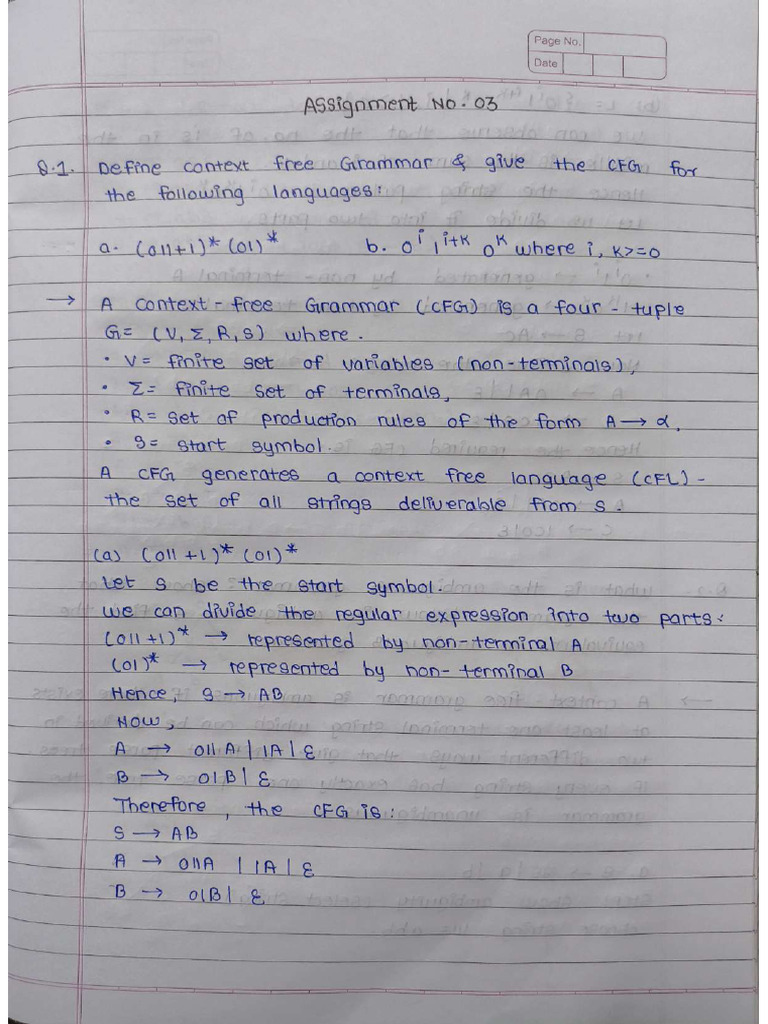 Page No.
Date
Assignment No. 03
Q.1. Define context free Grammar & give the CFG for
the following languages:
a. (011+1)* (01)* b. 0^i 1^i+k 0^k where i, k>=0
→ A context-free Grammar (CFG) is a four-tuple
G= (V, Σ, R, S) where.
• V= finite set of variables (non-terminals),
• Σ= finite set of terminals,
• R= set of production rules of the form A → α,
• S= start symbol.
A CFG generates a context free language (CFL) -
the set of all strings deliverable from S.
(a) (011 +1)* (01)*
Let S be the start symbol.
we can divide the regular expression into two parts:
(011+1)* → represented by non-terminal A
(01)* → represented by non-terminal B
Hence, S → AB
Now,
A → 011A | 1A | ε
B → 01B | ε
Therefore, the CFG is:
S → AB
A → 011A | 1A | ε
B → 01B | ε